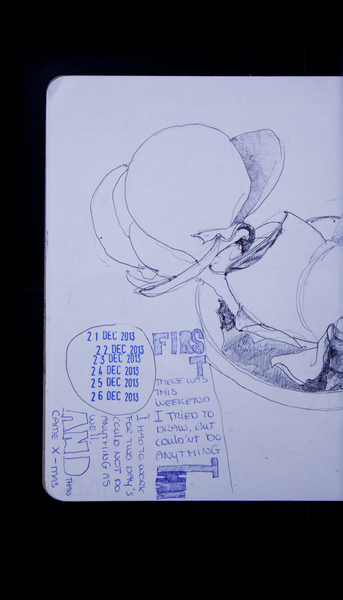 21 DEC 2013
22 DEC 2013
23 DEC 2013
24 DEC 2013
25 DEC 2013
26 DEC 2013
FIRS
T
THERE WAS
THIS
WEEKEND
I TRIED TO
DRAW, BUT
COULDN'T DO
ANYTHING
I HAD TO WORK
FOR TWO DAY'S
COULD NOT DO
ANYTHING AS
WELL.
AND
CAME X-MAS